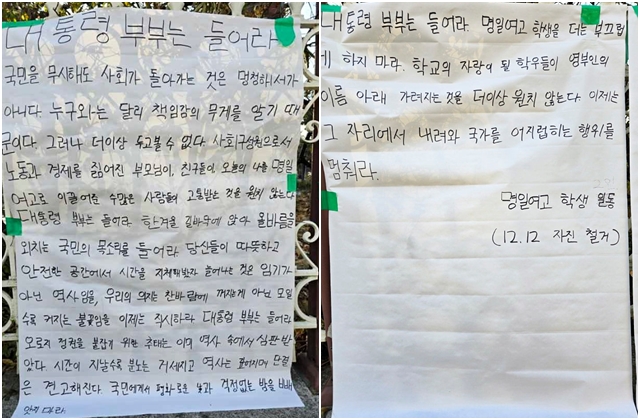 대통령 부부는 들어라
국민을 무시해도 사회가 돌아가는 것은 멍청해서가
아니다. 누구와는 달리 책임감의 무게를 알기 때
문이다. 그러나 더이상 두고볼 수 없다. 사회구성원으로서
노동과 경제를 짊어진 부모님이, 친구들이, 오늘의 나를 명일
여고로 이끌어준 수많은 사람들이 고통받는 것을 원치 않는다
대통령 부부는 들어라 한겨울 길바닥에 앉아 올바름을
외치는 국민의 목소리를 들어라 당신들이 따뜻하고
안전한 공간에서 시간을 지체할수록 늘어나는 것은 임기가
아닌 역사임을, 우리의 의지는 찬바람에 꺼지는게 아닌 모일
수록 커지는 불꽃임을 이제는 직시하라 대통령 부부는 들어라
오로지 정권을 붙잡기 위한 추태는 이미 역사 속에서 심판 받
았다. 시간이 지날수록 분노는 거세지고 역사는 깊어지며 단결
은 견고해진다. 국민에게서 평화로운 낮과 걱정없는 밤을 빼
앗지 마라.
대통령 부부는 들어라. 명일여고 학생을 더는 부끄럽
게 하지 마라. 학교의 자랑이 될 학우들이 영부인의
이름 아래 가려지는 것을 더이상 원치 않는다. 이제는
그 자리에서 내려와 국가를 어지럽히는 행위를
멈춰라.
명일여고 학생 일동
(12.12 자진 철거)